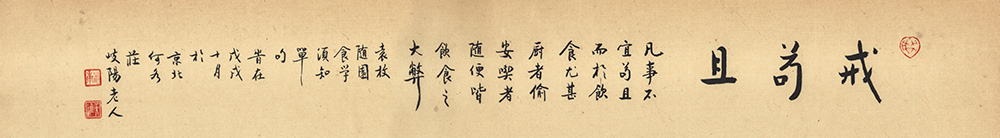 戒苟且
凡事不
宜苟且
而於飲
食尤甚
厨者偷
安喫者
随便皆
飲食之
大弊
袁枚
随園
食学
須知
單
句
昔在
戊戌
十月
於
京北
何各
莊
岐陽老人